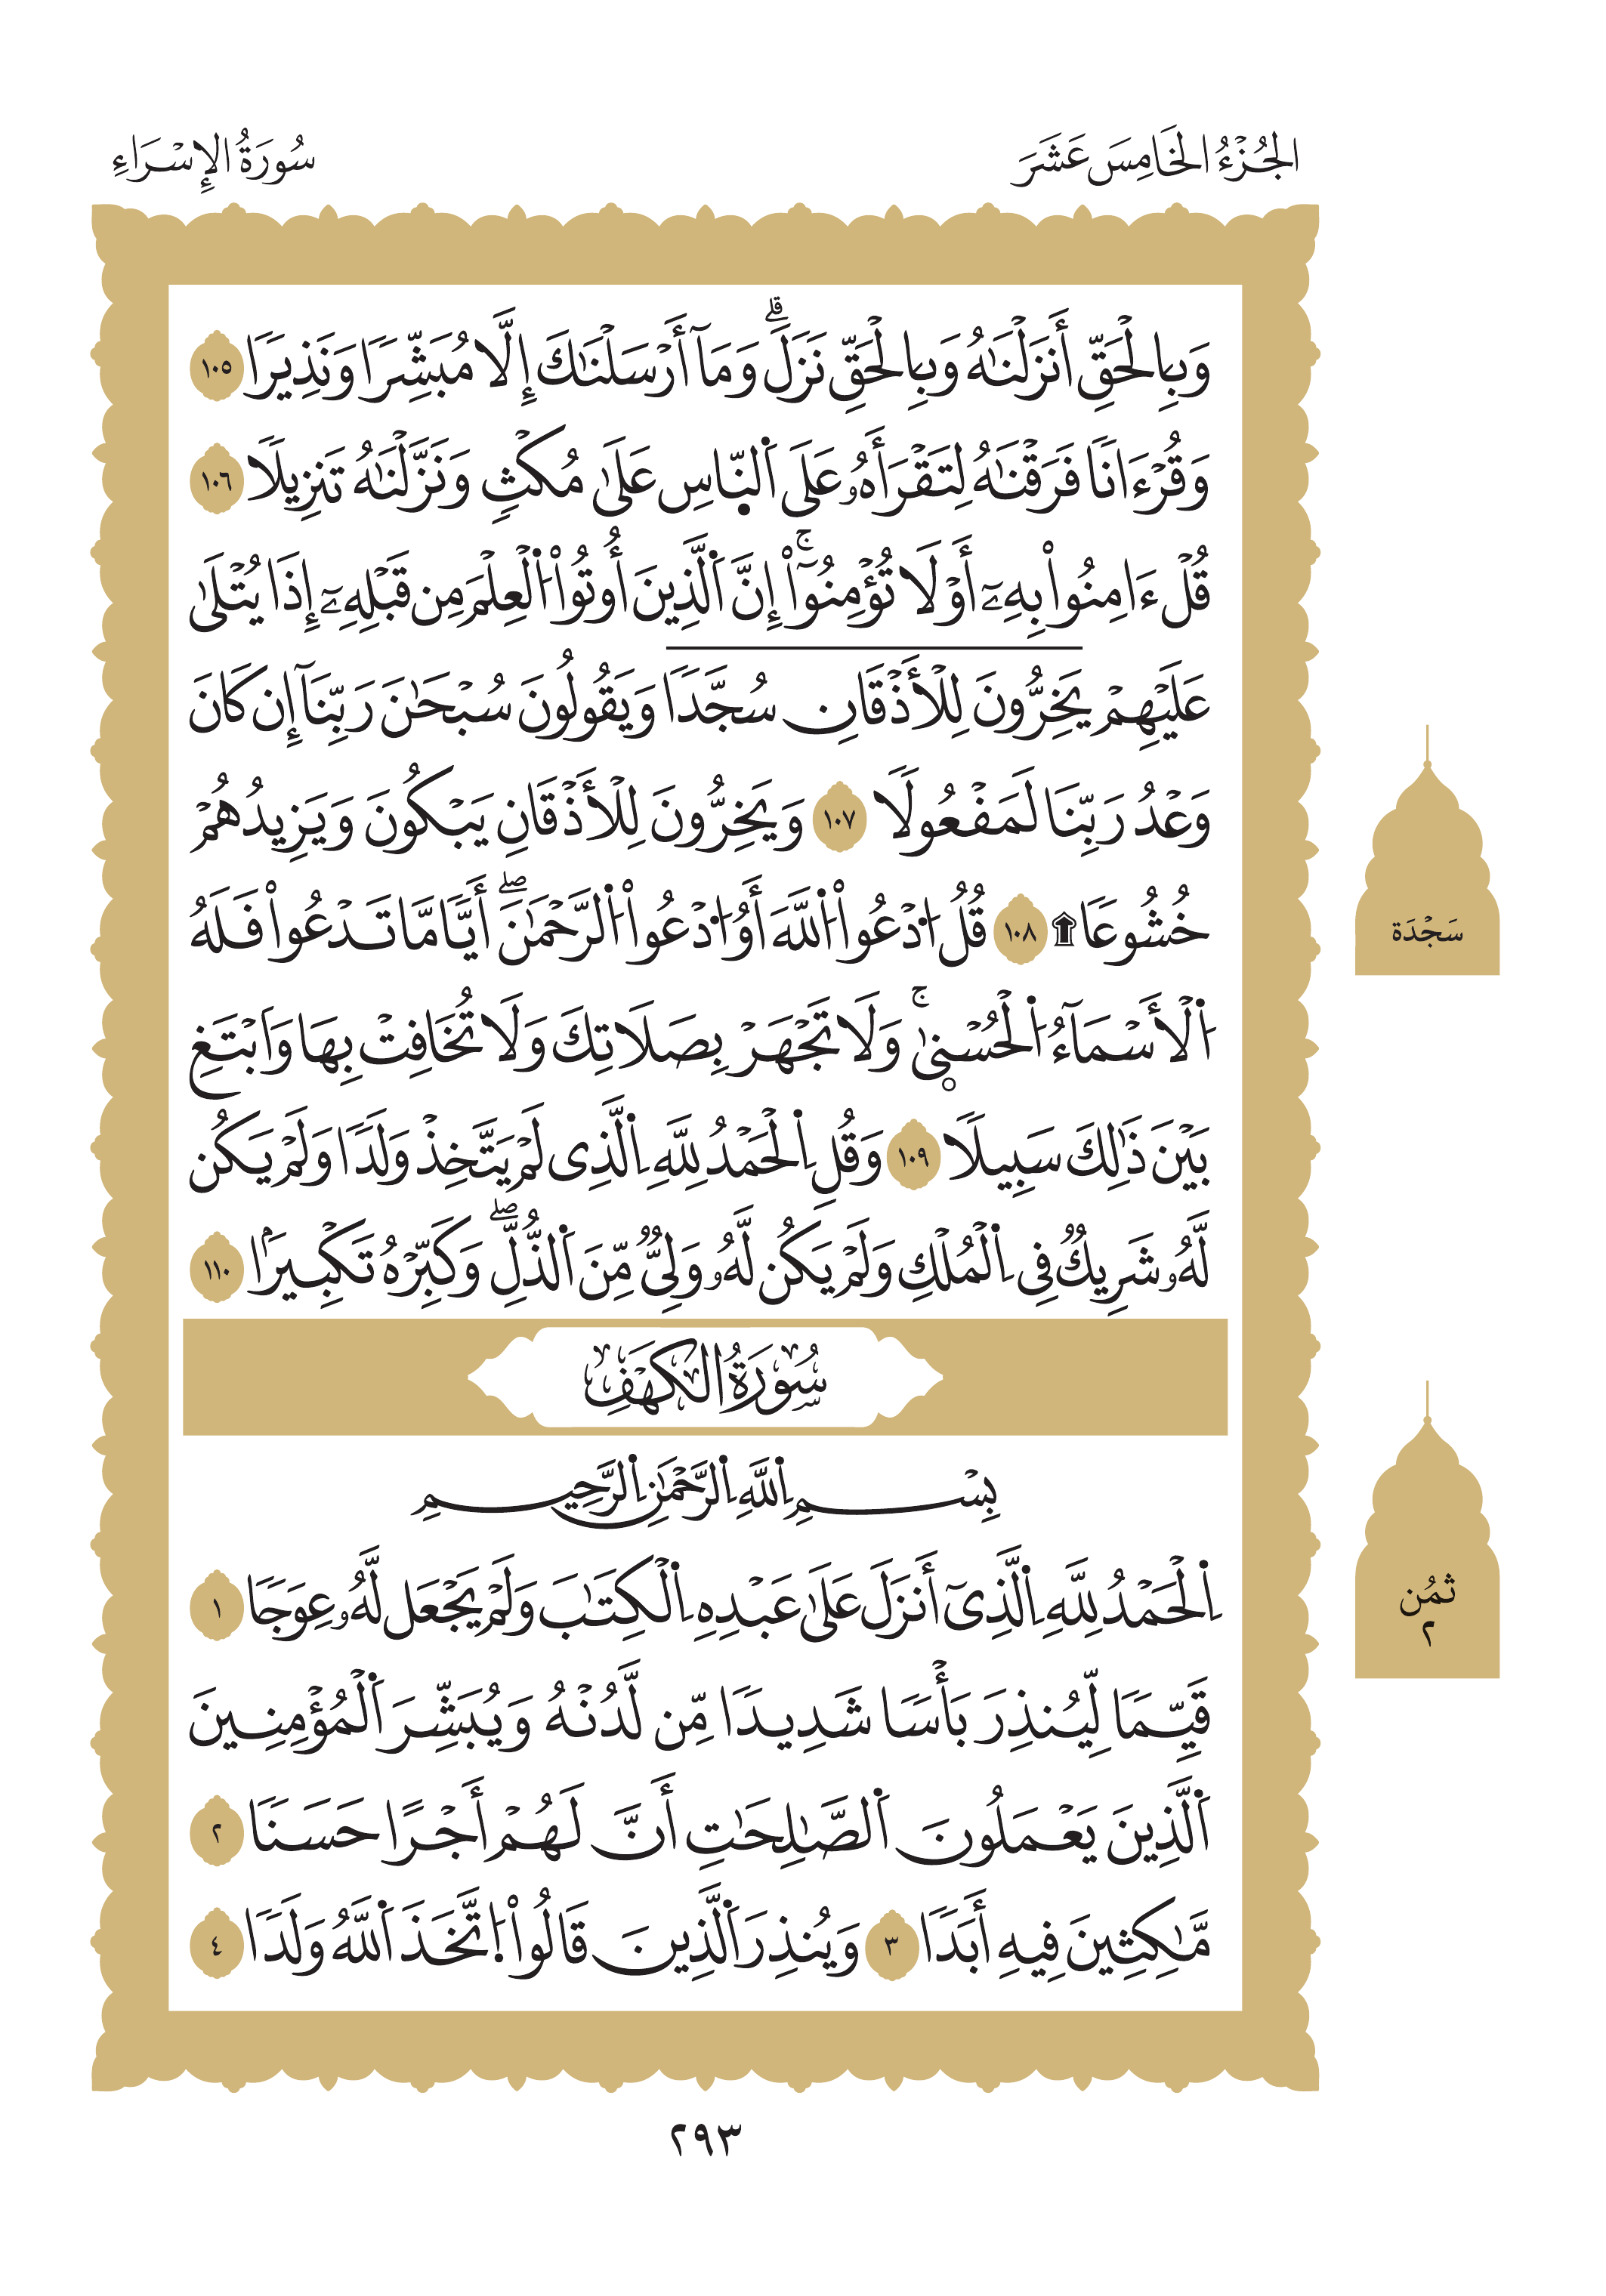 الجُزْءُ الخَامِسَ عَشَرَ
سُورَةُ الإِسْرَاءِ
وَبِالْحَقِّ أَنزَلْنَٰهُ وَبِالْحَقِّ نَزَلَۗ وَمَآ أَرْسَلْنَٰكَ إِلَّا مُبَشِّرًا وَنَذِيرًا ١٠٥
وَقُرْءَانًا فَرَقْنَٰهُ لِتَقْرَأَهُۥ عَلَى اَ۬لنَّاسِ عَلَىٰ مُكْثٍ وَنَزَّلْنَٰهُ تَنزِيلًا ١٠٦
قُلْ ءَامِنُواْ بِهِۦٓ أَوْ لَا تُؤْمِنُوٓاْۚ إِنَّ اَ۬لَّذِينَ أُوتُواْ اُ۬لْعِلْمَ مِن قَبْلِهِۦٓ إِذَا يُتْلَىٰ
عَلَيْهِمْ يَخِرُّونَ لِلْأَذْقَانِ سُجَّدًا وَيَقُولُونَ سُبْحَٰنَ رَبِّنَآ إِن كَانَ
وَعْدُ رَبِّنَا لَمَفْعُولًا ١٠٧ وَيَخِرُّونَ لِلْأَذْقَانِ يَبْكُونَ وَيَزِيدُهُمْ
خُشُوعًا۩ ١٠٨ قُلُ اُ۟دْعُواْ اُ۬للَّهَ أَوُ اُ۟دْعُواْ اُ۬لرَّحْمَٰنَۖ أَيًّا مَّا تَدْعُواْ فَلَهُ
اُ۬لْأَسْمَآءُ اُ۬لْحُسْنىٰۚ وَلَا تَجْهَرْ بِصَلَاتِكَ وَلَا تُخَافِتْ بِهَا وَابْتَغِ
بَيْنَ ذَٰلِكَ سَبِيلًا ١٠٩ وَقُلِ اِ۬لْحَمْدُ لِلَّهِ اِ۬لَّذِى لَمْ يَتَّخِذْ وَلَدًا وَلَمْ يَكُن
لَّهُۥ شَرِيكٌ فِى اِ۬لْمُلْكِ وَلَمْ يَكُن لَّهُۥ وَلِىٌّ مِّنَ اَ۬لذُّلِّۖ وَكَبِّرْهُ تَكْبِيرَۢا ١١٠
سُورَةُ الكَهْفِ
بِسْمِ اِ۬للَّهِ اِ۬لرَّحْمَٰنِ اِ۬لرَّحِيمِ
اِ۬لْحَمْدُ لِلَّهِ اِ۬لَّذِىٓ أَنزَلَ عَلَىٰ عَبْدِهِ اِ۬لْكِتَٰبَ وَلَمْ يَجْعَل لَّهُۥ عِوَجًا ١
قَيِّمًا لِّيُنذِرَ بَأْسًا شَدِيدًا مِّن لَّدُنْهُ وَيُبَشِّرَ اَ۬لْمُؤْمِنِينَ
اَ۬لَّذِينَ يَعْمَلُونَ اَ۬لصَّٰلِحَٰتِ أَنَّ لَهُمْ أَجْرًا حَسَنًا ٢
مَّٰكِثِينَ فِيهِ أَبَدًا ٣ وَيُنذِرَ اَ۬لَّذِينَ قَالُواْ اُ۪تَّخَذَ اَ۬للَّهُ وَلَدًا ٤
سَجْدَة
ثُمُن
٢
٢٩٣